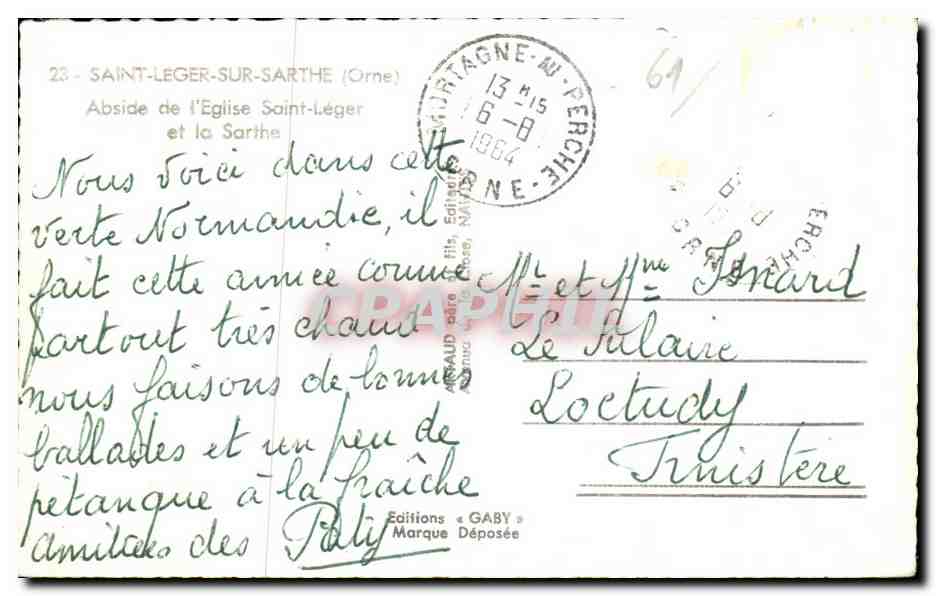 23 - SAINT-LEGER-SUR-SARTHE (Orne)
Abside de l'Eglise Saint-Léger
et la Sarthe
Nous voici dans cette
verte Normandie, il
fait cette année comme
partout très chaud
nous faisons de bonnes
ballades et un peu de
pétanque à la fraîche
amitiés des
MORTAGNE-AU-PERCHE
13 H 15
6-8
1964
ORNE
61
ERCHE
ORNE
Mr et Mme Isnard
Le Pulaire
Loctudy
Finistère
ARTAUD père et fils, Editeurs
Avenue de la Close, NANTES
Editions « GABY »
Marque Déposée
CPAPHIL